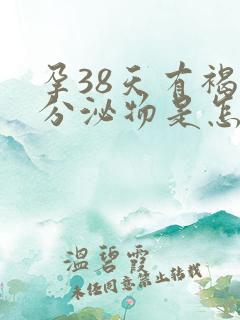 孕38天有褐
分泌物是怎
温碧霞
未经同意禁止转载